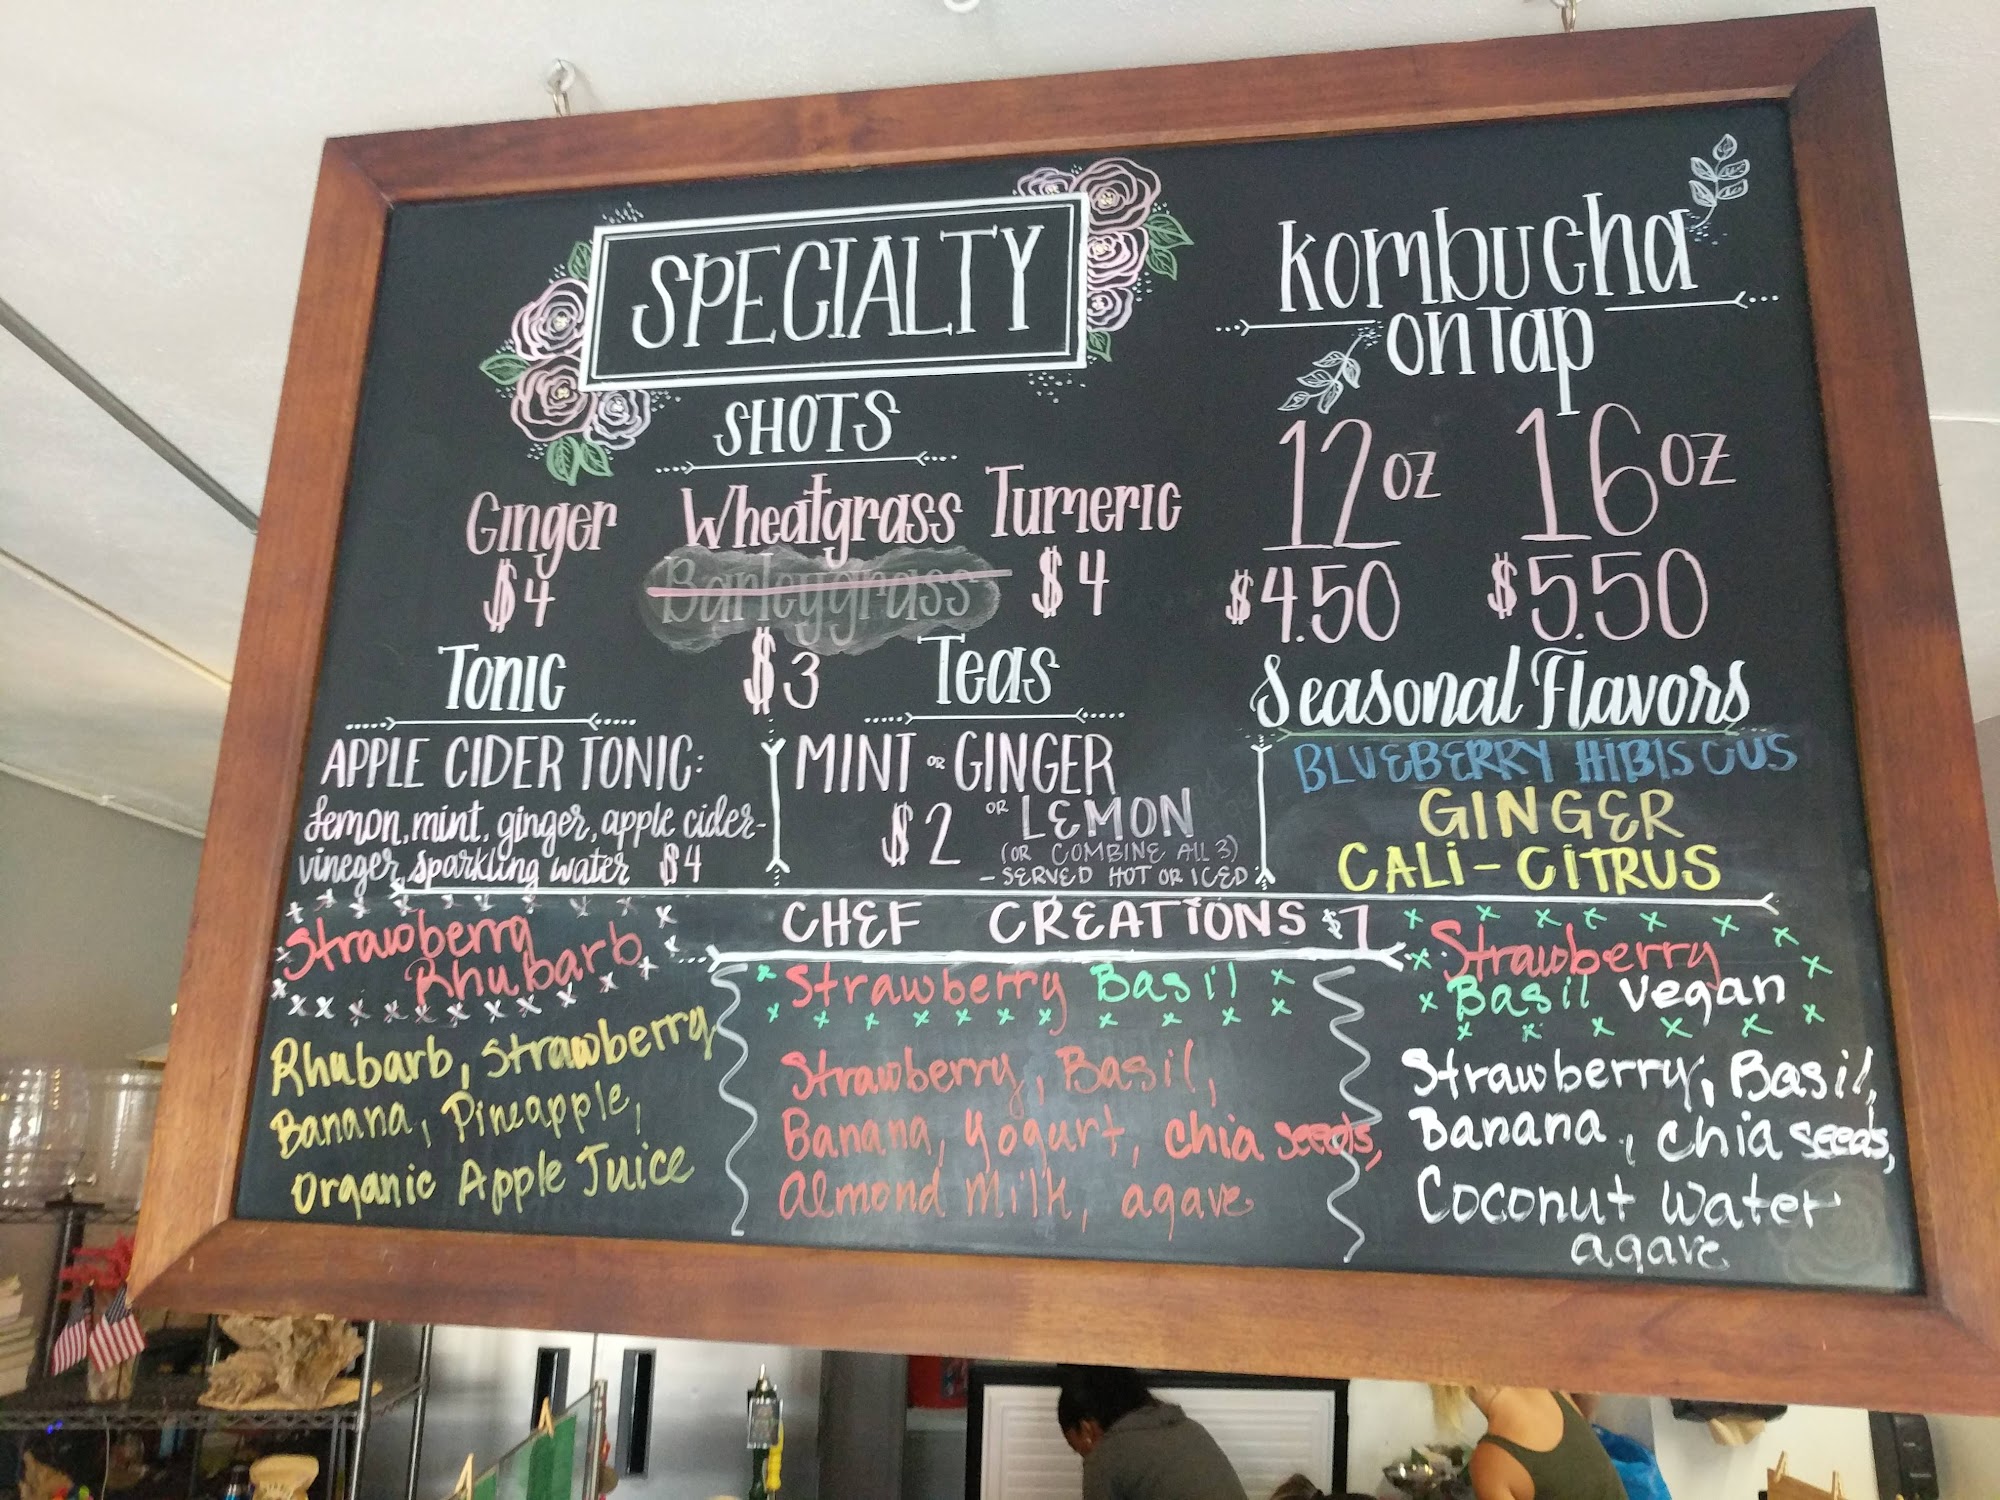 SPECIALTY
SHOTS
Ginger
$4
Wheatgrass
Barleygrass
$3
Tumeric
$4
Tonic
APPLE CIDER TONIC:
lemon, mint, ginger, apple cider-
vineger, sparkling water $4
Teas
MINT OR GINGER
$2 OR LEMON
(OR COMBINE ALL 3)
- SERVED HOT OR ICED
Kombucha
on Tap
12oz 16oz
$4.50 $5.50
Seasonal Flavors
BLUEBERRY HIBISCUS
GINGER
CALI-CITRUS
CHEF CREATIONS $7
Strawberry
Rhubarb
Rhubarb, Strawberry
Banana, Pineapple,
Organic Apple Juice
Strawberry Basil
Strawberry, Basil,
Banana, Yogurt, chia seeds,
Almond Milk, agave
Strawberry
Basil Vegan
Strawberry, Basil,
Banana, chia seeds,
Coconut Water
agave